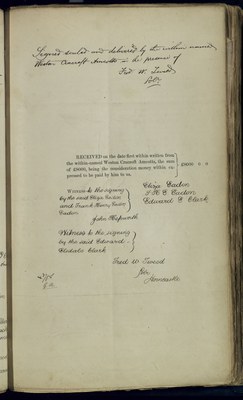 Signed sealed and delivered by the within named
Weston Cracroft Amcotts in the presence of
Fred W. Tweed
RECEIVED on the date first within written from
the within-named Weston Cracroft Amcotts, the sum
of £8000, being the consideration money within ex-
pressed to be paid by him to us.
£8000 " "
Witness to the signing
by the said Eliza Cadon
and Frank Henry
Cadon
Eliza Cadon
F. H. Cadon
Edward G Clark
John Hepworth
Witness to the signing
by the said Edward
Clark
Fred W Tweed